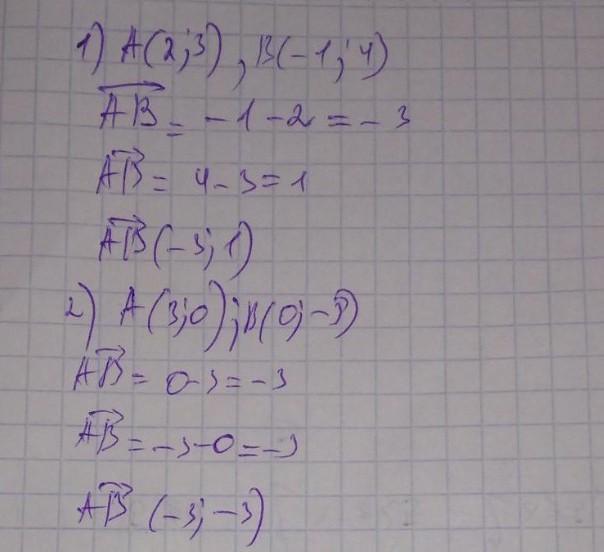 1) A(2;3), B(-1;4)
AB = -1-2 = -3
AB = 4-3=1
AB (-3; 1)
2) A(3;0); B(0;-3)
AB = 0-3=-3
AB = -3-0=-3
AB (-3; -3)